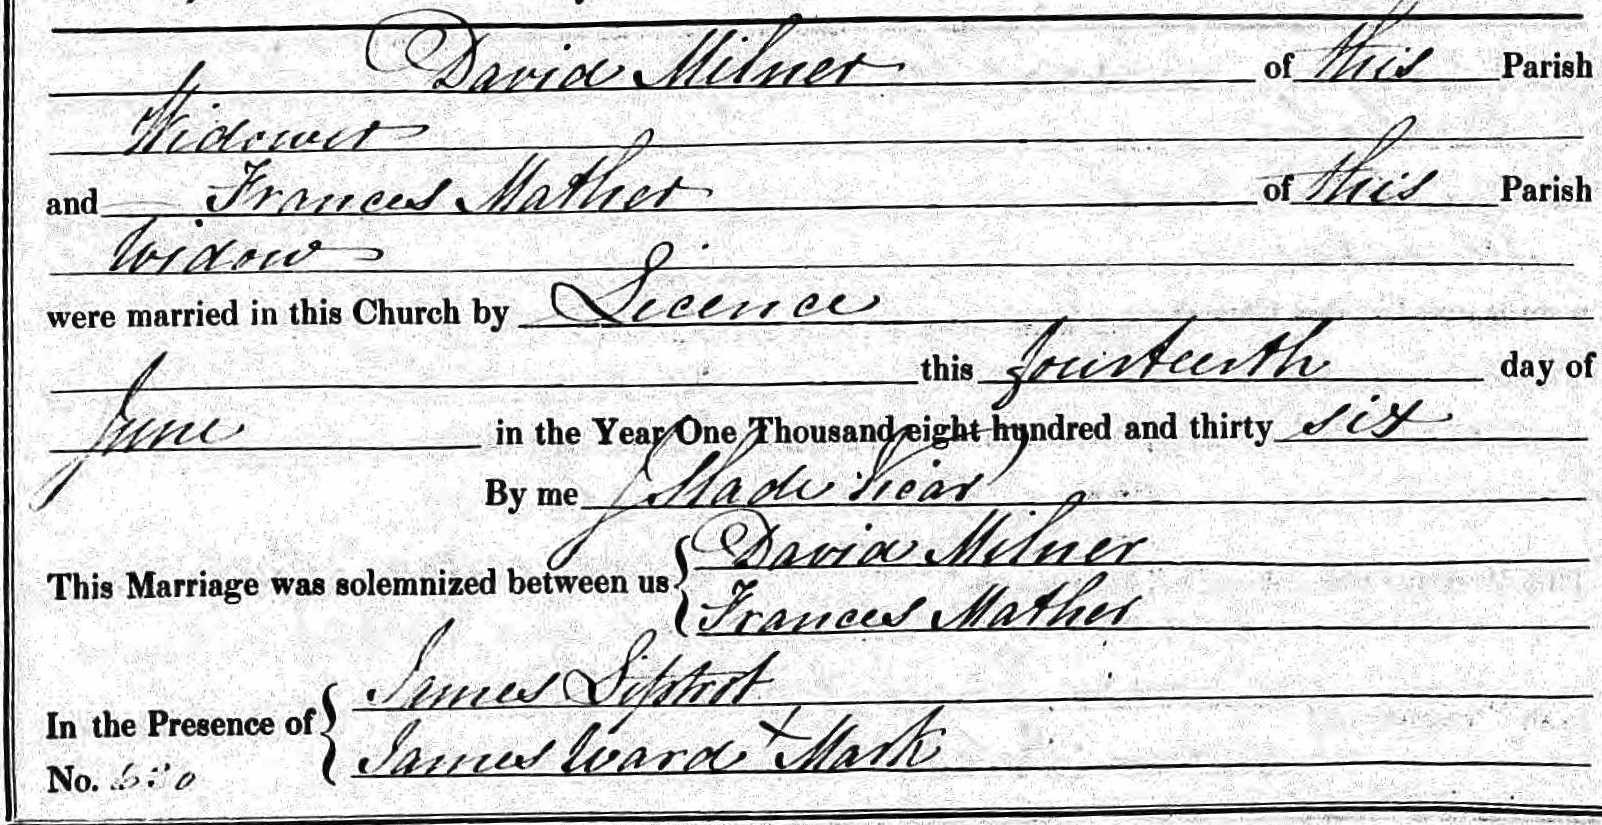 David Milner of this Parish
Widower
and Frances Mather of this Parish
Widow
were married in this Church by Licence
this fourteenth day of
June in the Year One Thousand eight hundred and thirty six
By me J Slade Vicar
This Marriage was solemnized between us { David Milner
Frances Mather
In the Presence of { James
James Ward X Mark
No.